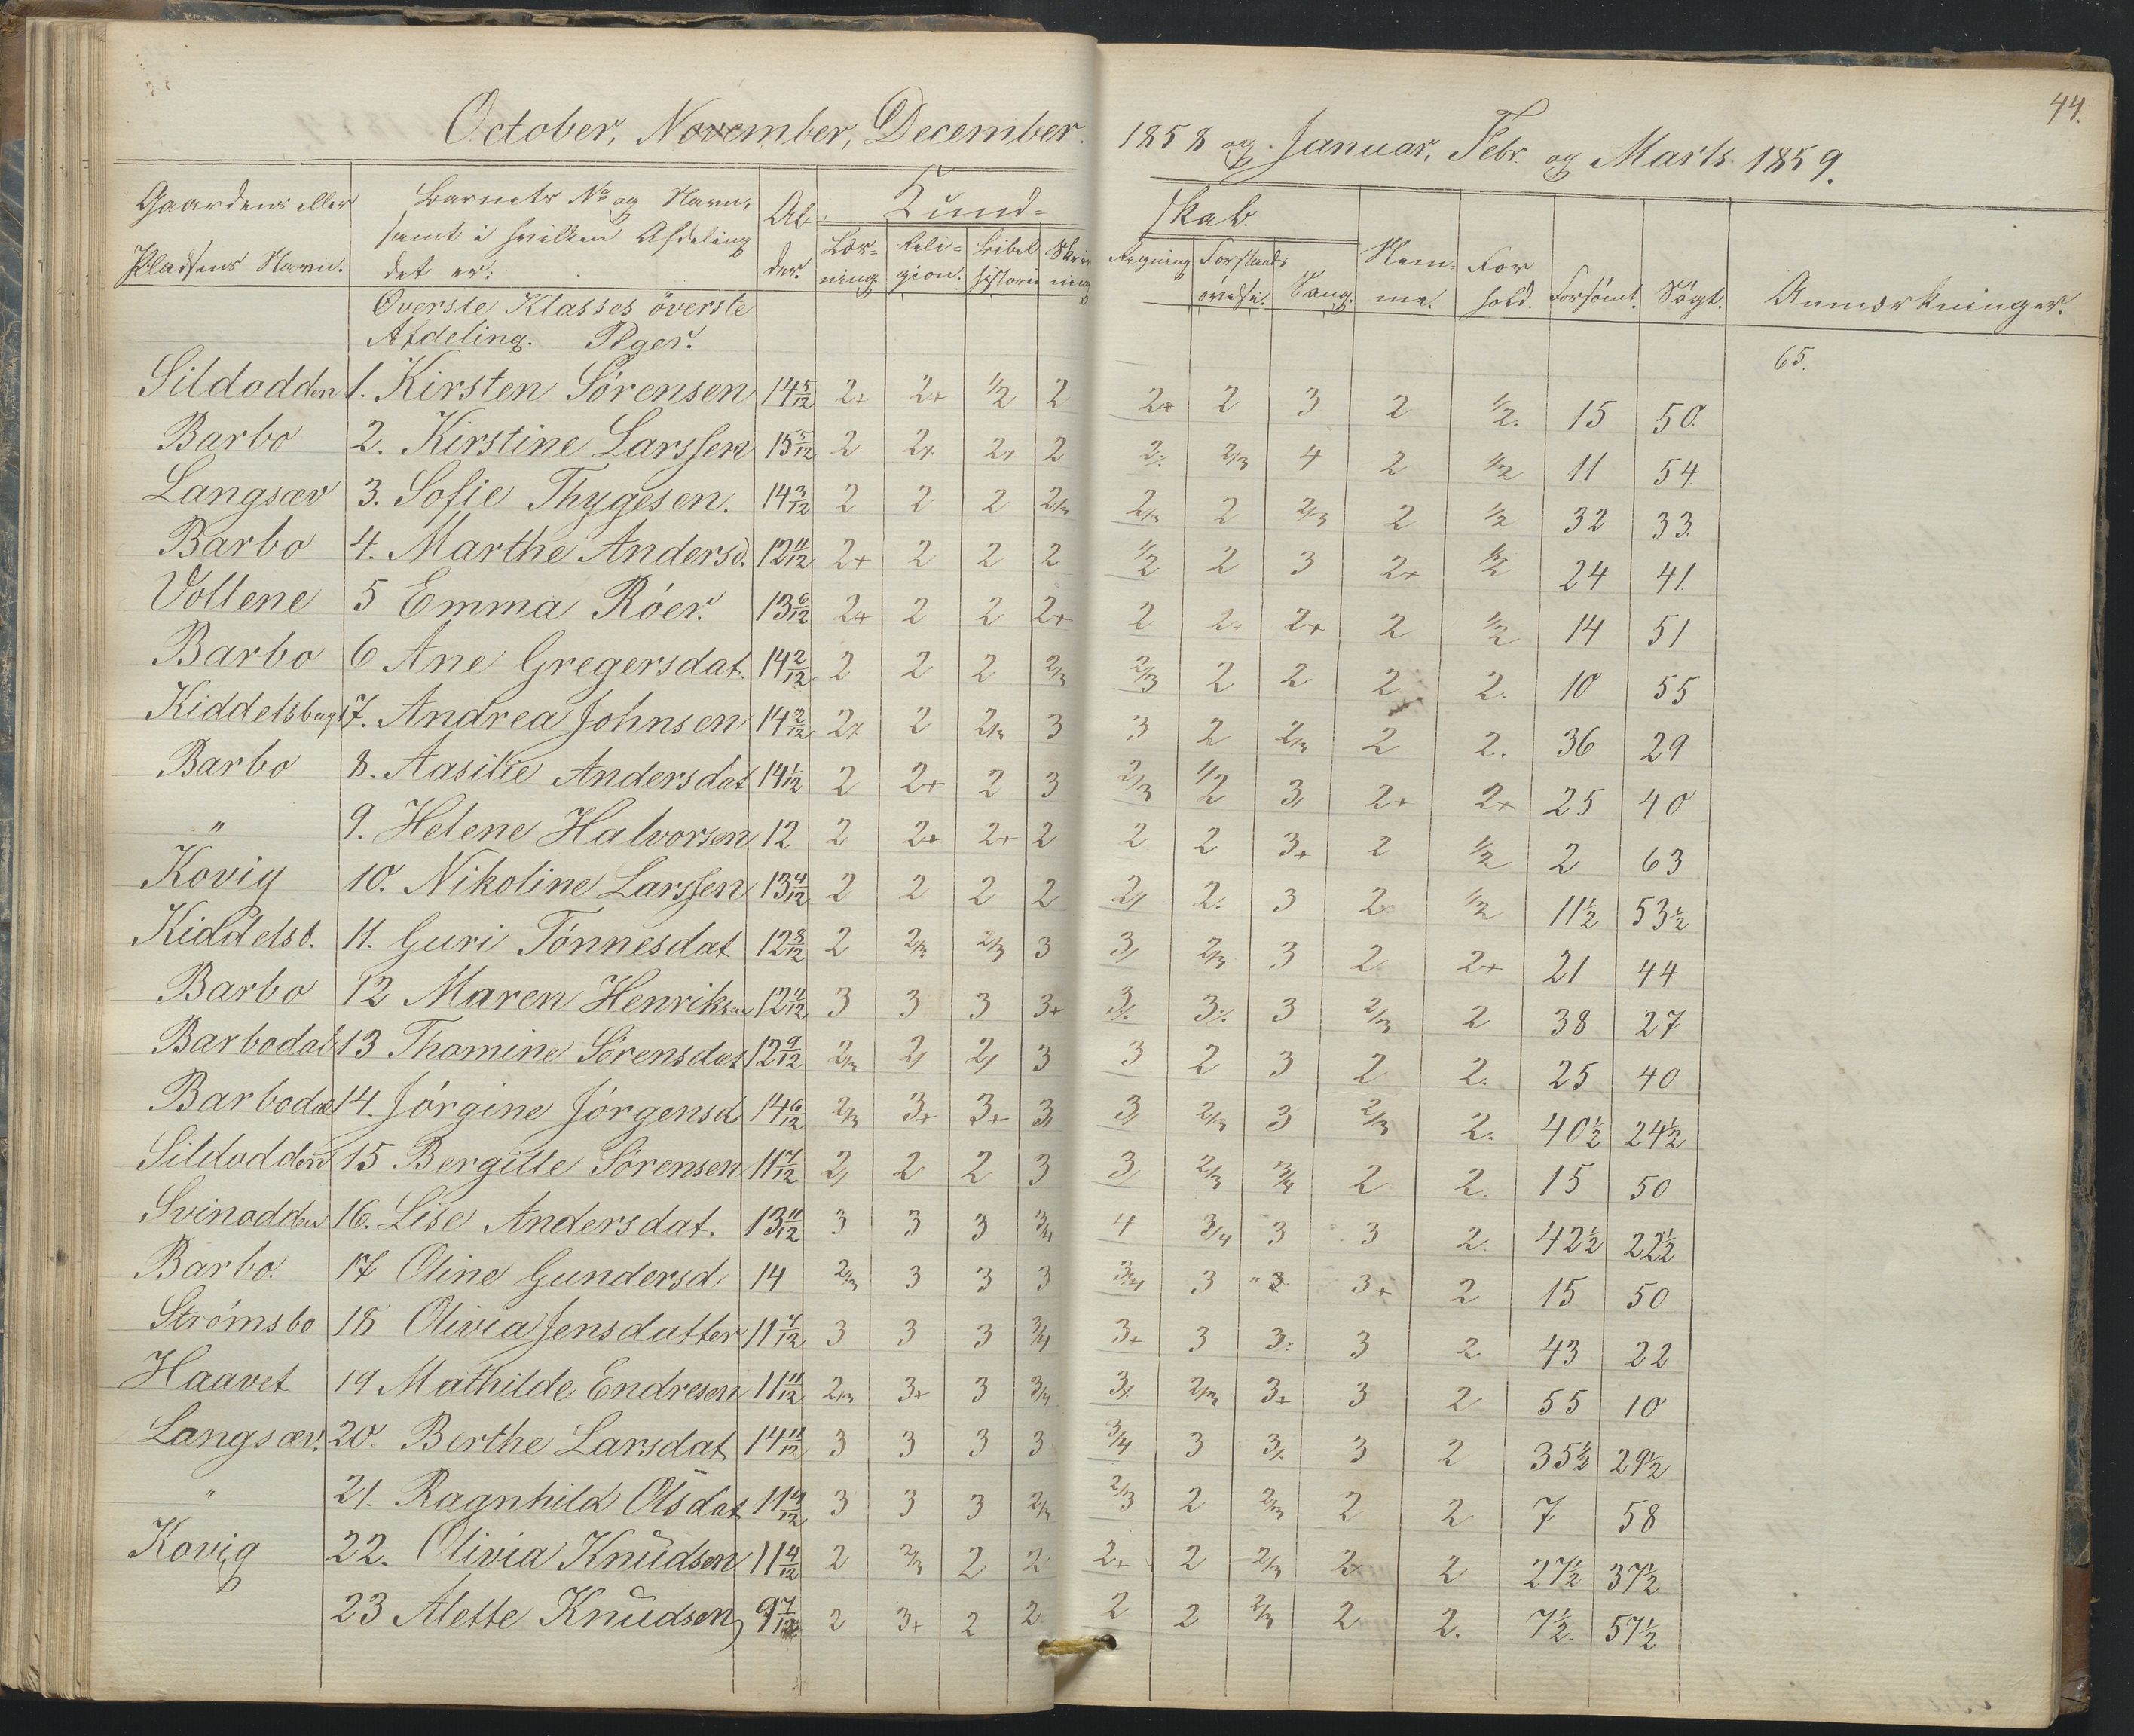 44.
October, November, December 1858 og Januar, Febr. og Marts 1859.
Gaardens eller Pladsens Navn.
Barnets No og Navn, samt i hvilken Afdeling det er:
Alder.
Kundskab.
Læsning. Religion. Bibelhistorie Skrivning Regning Forstandsøvelse. Sang.
Nemme. Forhold. Forsömt. Sögt. Anmærkninger.
Överste Klasses överste
Afdeling. Piger.
65.
Sildodden 1. Kirsten Sörensen 14 5/12 2+ 2+ 1/2 2 2+ 2 3 2 1/2. 15 50.
Barbo 2. Kirstine Larssen 15 5/12 2 2 2 2/3 4 2 1/2 11 54.
Langsæv 3. Sofie Thygesen. 14 3/12 2 2 2 2/3 2/3 2 2/3 2 1/2 32 33.
Barbo 4. Marthe Andersd. 12 11/12 2+ 2 2 2 1/2 2 3 2+ 1/2 24 41.
Vollene 5 Emma Röer. 13 6/12 2+ 2 2 2+ 2 2+ 2+ 2 1/2 14 51
Barbo 6 Ane Gregersdat. 14 2/12 2 2 2 2/3 2/3 2 2 2 2. 10 55
Kiddelsbugt 7. Andrea Johnsen 14 2/12 2 2/3 3 3 2 2/3 2 2. 36 29
Barbo 8. Aasilie Andersdat 14 1/12 2 2+ 2 3 2/3 1/2 3 2+ 2+ 25 40
" 9. Helene Halvorsen 12 2 2+ 2+ 2 2 2 3+ 2 1/2 2 63
Kovig 10. Nikoline Larssen 13 4/12 2 2 2 2 2 2. 3 2 1/2 11 1/2 53 1/2
Kiddelsb. 11. Guri Tönnesdat 12 8/12 2 2/3 2/3 3 3 2/3 3 2 2+ 21 44
Barbo 12 Maren Henriksen 12 4/12 3 3 3 3+ 3 2/3 2 38 27
Barbodal 13 Thomine Sörensdat 12 9/12 2/3 2 2 3 3 2 3 2 2. 25 40
Barbodal 14. Jörgine Jörgensd 14 6/12 2/3 3+ 3+ 3 3 2/3 3 2/3 2. 40 1/2 24 1/2
Sildodden 15 Bergitte Sörensen 11 7/12 2 2 2 3 3 2/3 3/4 2 2. 15 50
Svinodden 16. Lise Andersdat. 13 11/12 3 3 3 3/4 4 3/4 3 3 2. 42 1/2 22 1/2
Barbo. 17 Oline Gundersd 14 2/3 3 3 3 3/4 3 " 3+ 2 15 50
Strömsbo 18 Olivia Jensdatter 11 7/12 3 3 3 3/4 3+ 3 3 2 43 22
Haavet 19 Mathilde Endresen 11 11/12 2/3 3+ 3 3/4 2/3 3+ 3 2 55 10
Langsæv. 20. Berthe Larsdat 14 11/12 3 3 3 3 3/4 3 3 2 35 1/2 29 1/2
" 21. Ragnhild Olsdat 11 9/12 3 3 3 2/3 2/3 2 2/3 2 2 7 58
Kovig 22. Olivia Knudsen 11 4/12 2 2/3 2 2 2+ 2 2/3 2+ 2 27 1/2 37 1/2
23 Alette Knudsen 9 7/12 2 3+ 2 2 2 2 2/3 2 2. 7 1/2. 57 1/2